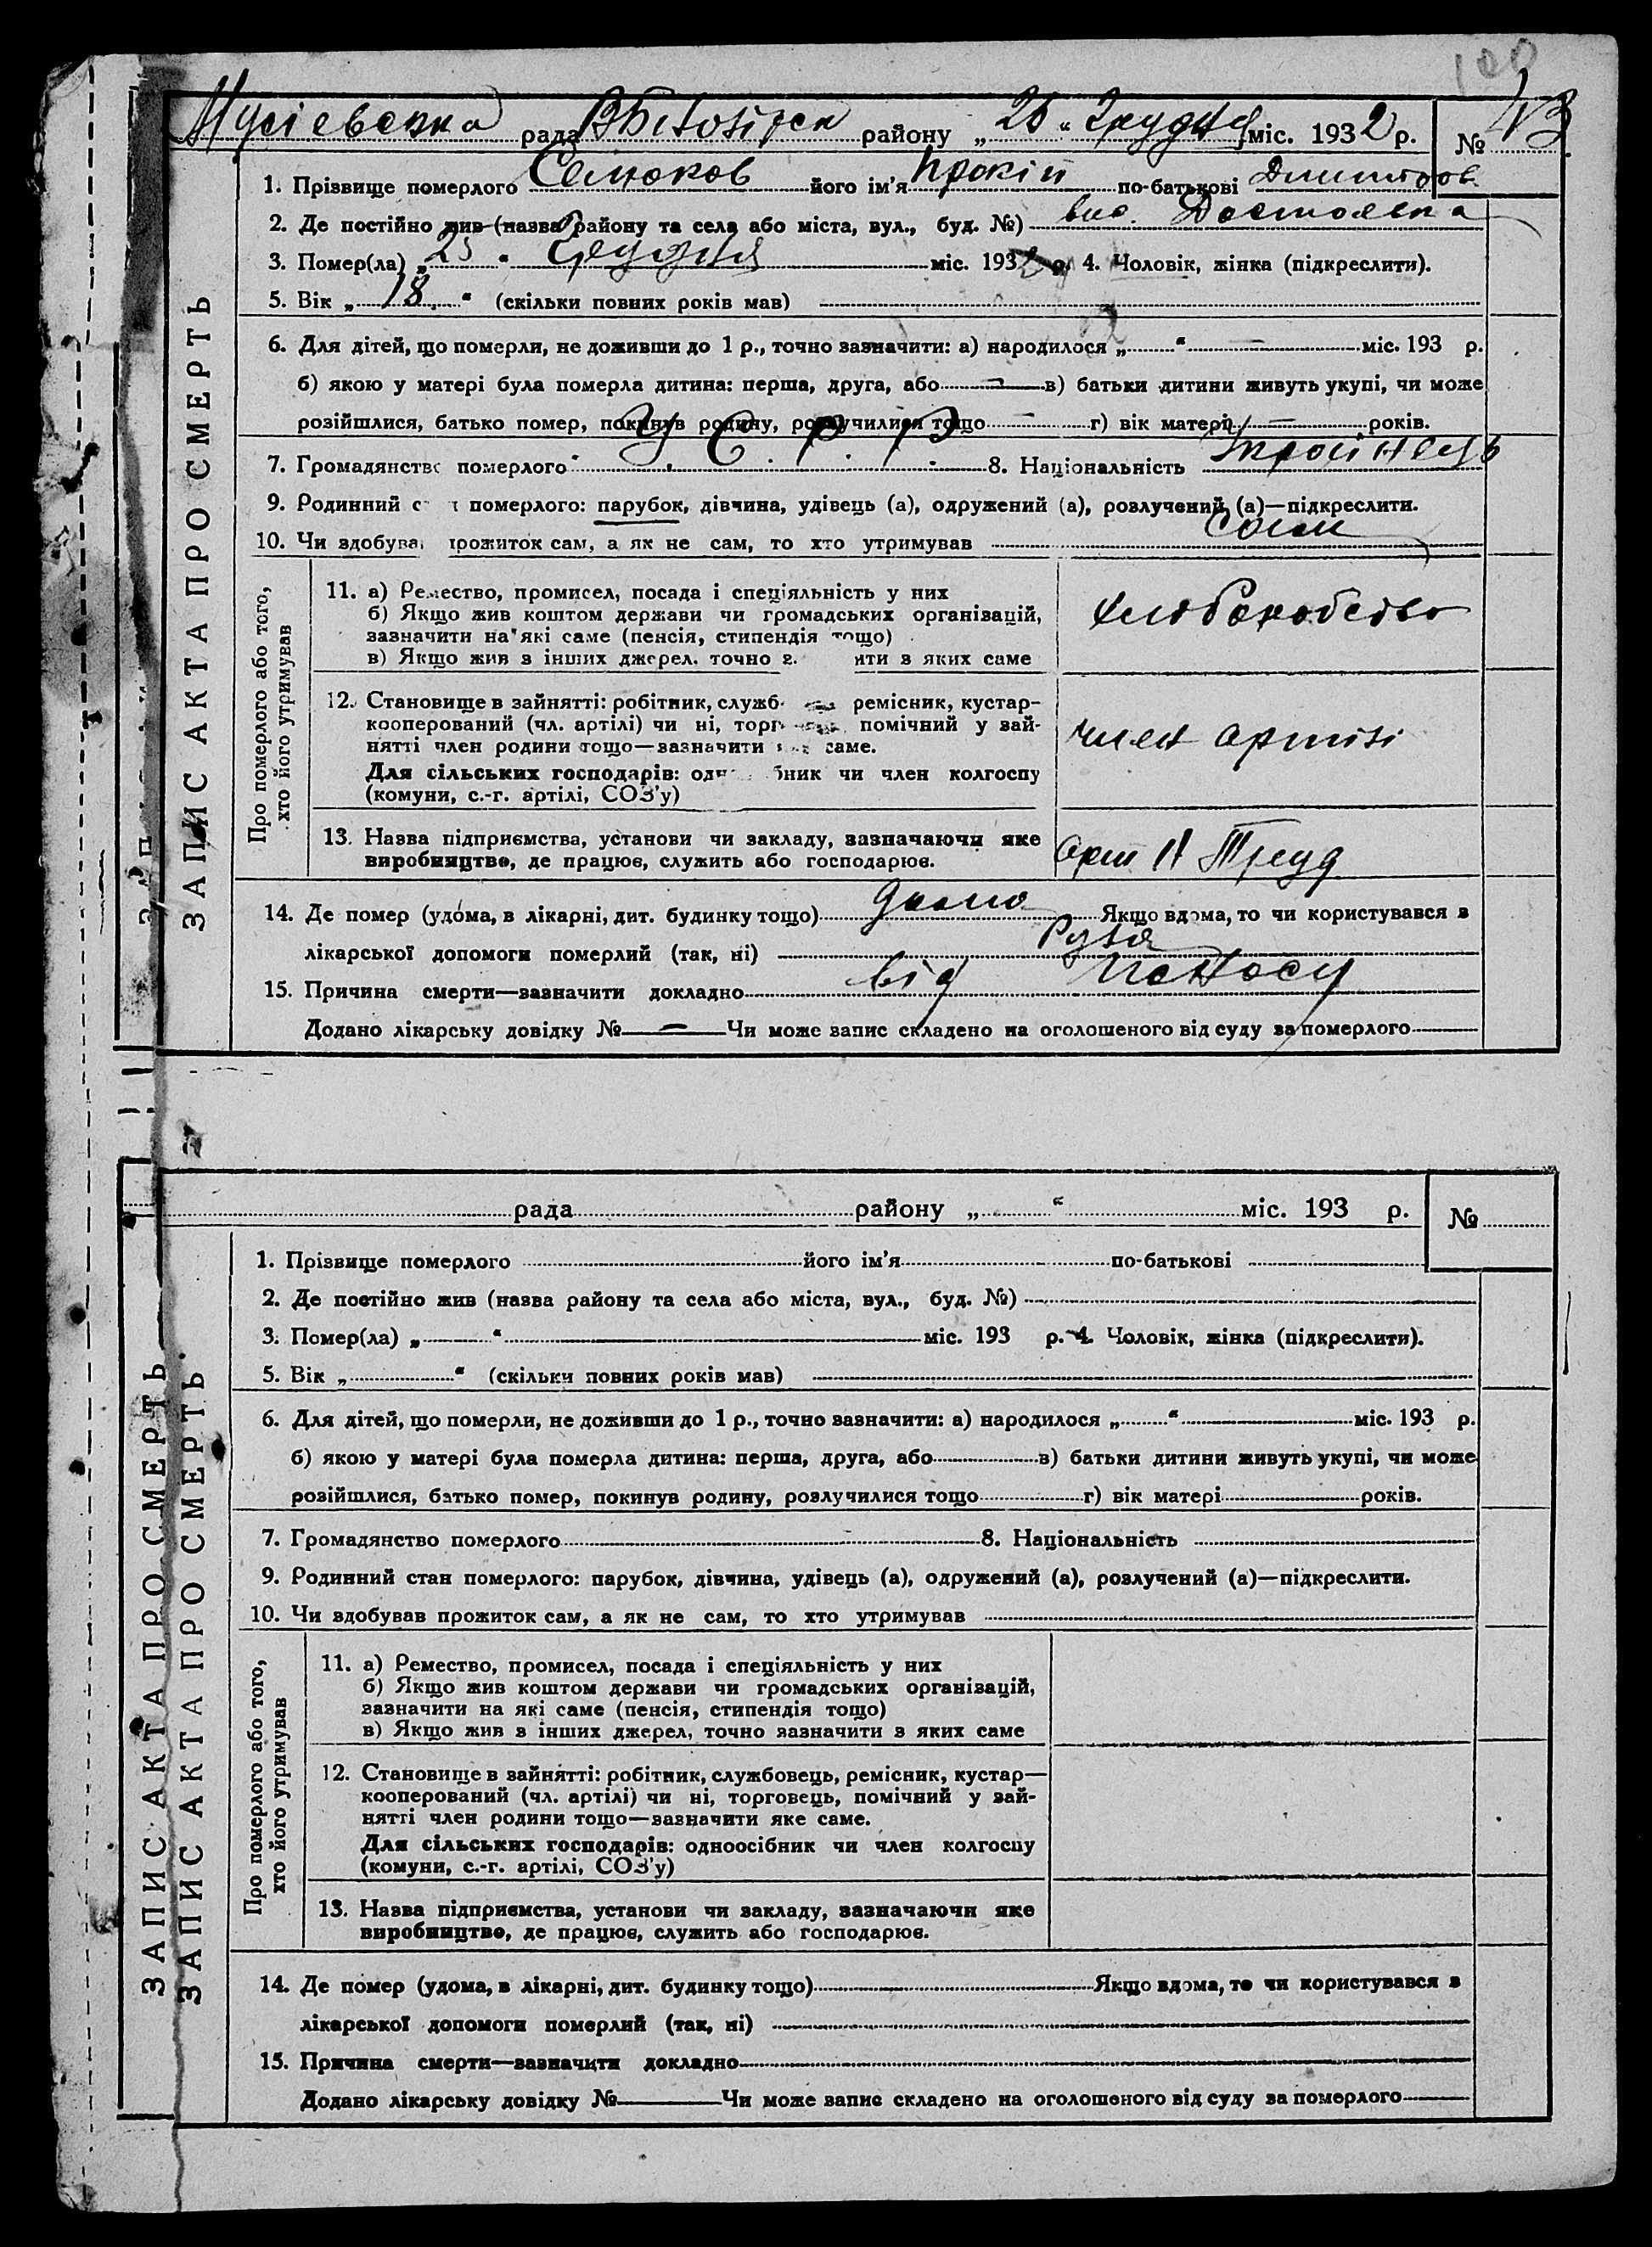 100
Мусіевська рада В Білозірск району „25“ Грудня міс. 1932 р. № 43
1. Прізвище померлого Семюков його ім'я Прокіп по-батькові Дмитров.
2. Де постійно жив (назва району та села або міста, вул., буд. №) вис.
3. Помер(ла) „25“ Грудня міс. 1932 р. 4. Чоловік, жінка (підкреслити).
5. Вік „18.“ (скільки повних років мав)
6. Для дітей, що померли, не доживши до 1 р., точно зазначити: а) народилося „ “ — міс. 193 р.
б) якою у матері була померла дитина: перша, друга, або — в) батьки дитини живуть укупі, чи може
розійшлися, батько помер, покинув родину, розлучилися тощо — г) вік матері — років.
7. Громадянство померлого У. С. Р. Р. 8. Національність Українець
9. Родинний с т померлого: парубок, дівчина, удівець (а), одружений (а), розлучений (а)—підкреслити.
10. Чи здобува прожиток сам, а як не сам, то хто утримував Сам
ЗАПИС АКТА ПРО СМЕРТЬ
Про померлого або того,
хто його утримував
11. а) Ремество, промисел, посада і спеціяльність у них
б) Якщо жив коштом держави чи громадських організацій,
зазначити на які саме (пенсія, стипендія тощо)
в) Якщо жив з інших джерел, точно з ити з яких саме
хліборобство
12. Становище в зайнятті: робітник, служб ремісник, кустар-
кооперований (чл. артілі) чи ні, торг помічний у зай-
нятті член родини тощо—зазначити саме.
Для сільських господарів: одн бник чи член колгоспу
(комуни, с.-г. артілі, СОЗ'у)
член артілі
13. Назва підприємства, установи чи закладу, зазначаючи яке
виробництво, де працює, служить або господарює.
Арт Н Труд
14. Де помер (удома, в лікарні, дит. будинку тощо) дома Якщо вдома, то чи користувався з
лікарської допомоги померлий (так, ні)
15. Причина смерти—зазначити докладно від поносу
Додано лікарську довідку № — Чи може запис складено на оголошеного від суду за померлого
рада району „ “ міс. 193 р. №
1. Прізвище померлого його ім'я по-батькові
2. Де постійно жив (назва району та села або міста, вул., буд. №)
3. Помер(ла) „ “ міс. 193 р. 4. Чоловік, жінка (підкреслити).
5. Вік „ “ (скільки повних років мав)
6. Для дітей, що померли, не доживши до 1 р., точно зазначити: а) народилося „ “ міс. 193 р.
б) якою у матері була померла дитина: перша, друга, або в) батьки дитини живуть укупі, чи може
розійшлися, батько помер, покинув родину, розлучилися тощо г) вік матері років.
7. Громадянство померлого 8. Національність
9. Родинний стан померлого: парубок, дівчина, удівець (а), одружений (а), розлучений (а)—підкреслити.
10. Чи здобував прожиток сам, а як не сам, то хто утримував
ЗАПИС АКТА ПРО СМЕРТЬ
ЗАПИС АКТА ПРО СМЕРТЬ
Про померлого або того,
хто його утримував
11. а) Ремество, промисел, посада і спеціяльність у них
б) Якщо жив коштом держави чи громадських організацій,
зазначити на які саме (пенсія, стипендія тощо)
в) Якщо жив з інших джерел, точно зазначити з яких саме
12. Становище в зайнятті: робітник, службовець, ремісник, кустар—
кооперований (чл. артілі) чи ні, торговець, помічний у зай-
нятті член родини тощо—зазначити яке саме.
Для сільських господарів: одноосібник чи член колгоспу
(комуни, с.-г. артілі, СОЗ'у)
13. Назва підприємства, установи чи закладу, зазначаючи яке
виробництво, де працює, служить або господарює.
14. Де помер (удома, в лікарні, дит. будинку тощо) Якщо вдома, то чи користувався з
лікарської допомоги померлий (так, ні)
15. Причина смерти—зазначити докладно
Додано лікарську довідку № Чи може запис складено на оголошеного від суду за померлого